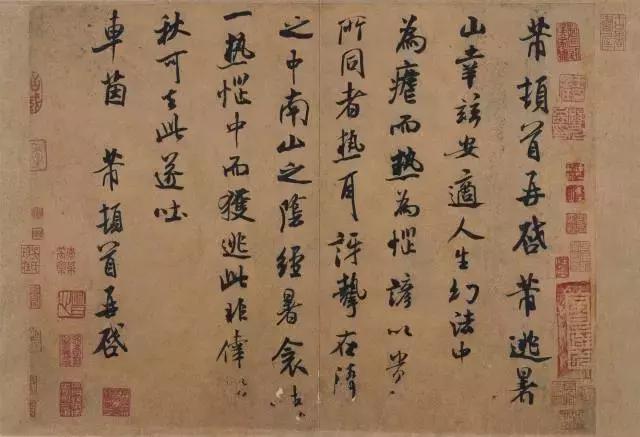 芾頓首再啓芾逃暑
山幸兹安適人生幻法中
為瘧而熱為惱諺以貴
所同者熱耳訝摯在清
之中南山之陰經暑衾
一熱惱中而獲逃此非倖
秋可去此遂吐
車茵 芾頓首再啓